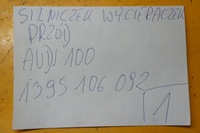 SILNICZEK WYCIERACZEK
PRZÓD
AUDI 100
1395 106 092
1